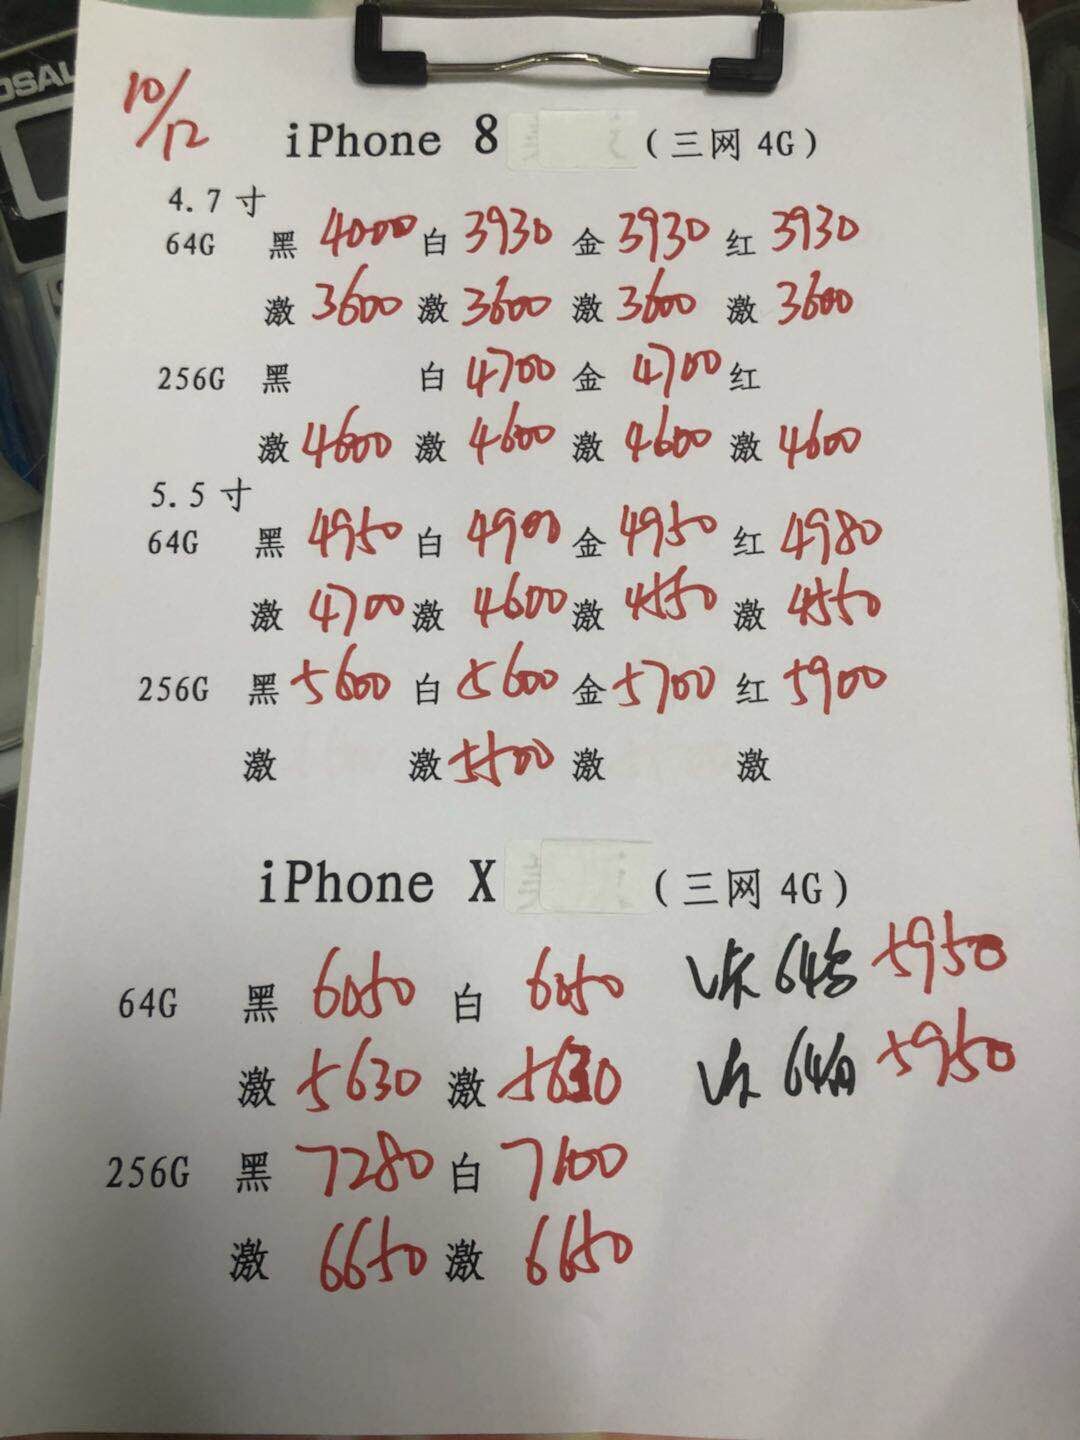 10/12
iPhone 8 （三网 4G）
4.7 寸
64G 黑 4000 白 3930 金 3930 红 3930
激 3600 激 3600 激 3600 激 3600
256G 黑 白 4700 金 4700 红
激 4600 激 4600 激 4600 激 4600
5.5 寸
64G 黑 4950 白 4900 金 4950 红 4980
激 4700 激 4600 激 4550 激 4550
256G 黑 5600 白 5600 金 5700 红 5900
激 激 5500 激 激
iPhone X （三网 4G）
64G 黑 6050 白 6050 64 5950
激 5630 激 5630 64白 5950
256G 黑 7280 白 7100
激 6650 激 6650